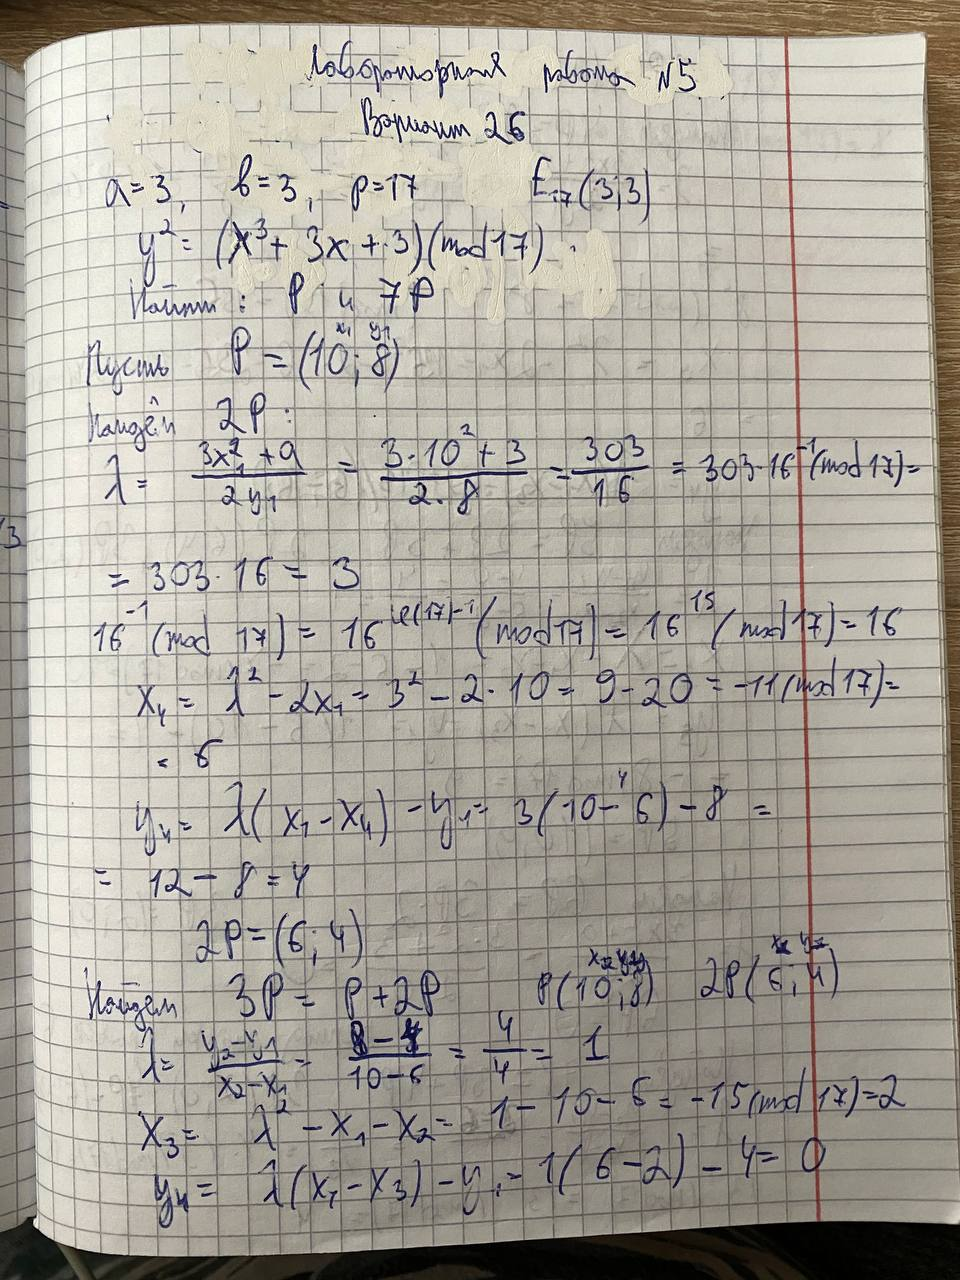 Лабораторная работа №5
Вариант 26
a=3, b=3, p=17 E₁₇(3;3)
y² = (x³ + 3x + 3)(mod 17)
Найти: P и 7P
x₁ y₁
Пусть P = (10; 8)
Найдём 2P:
λ = (3x₁² + a)/(2y₁) = (3·10² + 3)/(2·8) = 303/16 = 303·16⁻¹(mod 17) =
= 303·16 = 3
16⁻¹(mod 17) = 16^(φ(17)-1) (mod 17) = 16¹⁵(mod 17) = 16
x₄ = λ² - 2x₁ = 3² - 2·10 = 9 - 20 = -11(mod 17) =
= 6
4
y₄ = λ(x₁ - x₄) - y₁ = 3(10 - 6) - 8 =
= 12 - 8 = 4
2P = (6; 4)
Найдем 3P = P + 2P P(10;8) 2P(6;4)
λ = (y₂ - y₁)/(x₂ - x₁) = (8 - 4)/(10 - 6) = 4/4 = 1
x₃ = λ² - x₁ - x₂ = 1 - 10 - 6 = -15(mod 17) = 2
y₄ = λ(x₁ - x₃) - y₁ = 1(6 - 2) - 4 = 0